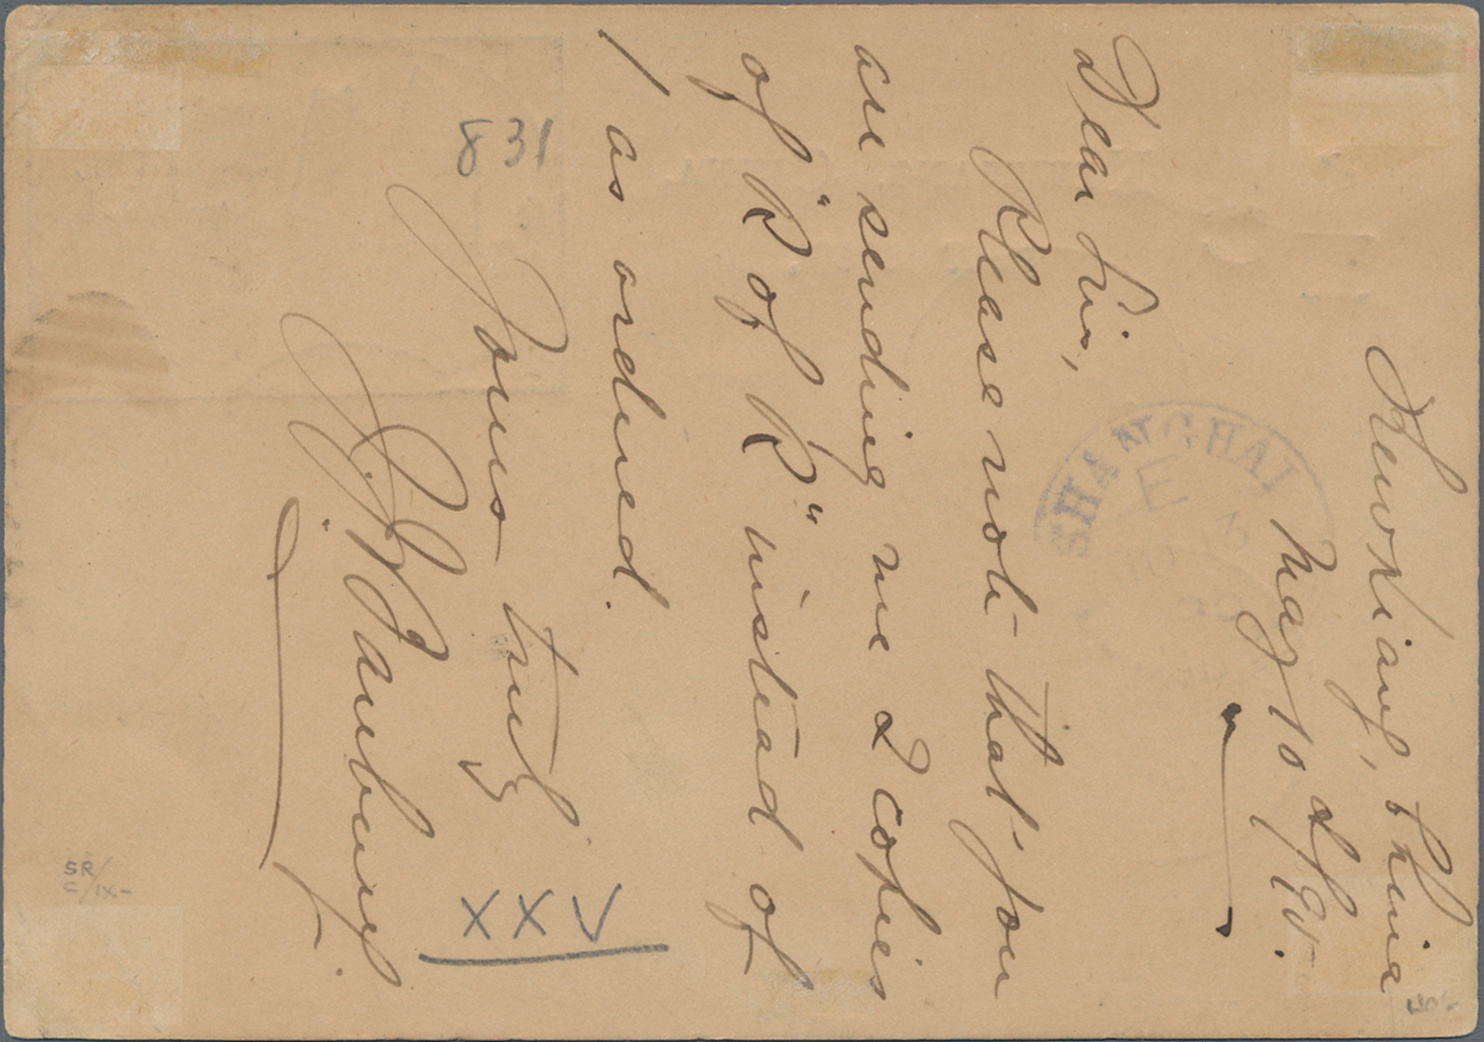 Kewkiang, China
May 10
Dear Sir,
Please note that you
are sending me 2 copies
of "R of R" instead of
1 as ordered.
Yours truly
J. J. Banbury.
SHANGHAI
E
13
831
XXV
SR/
C/IX-